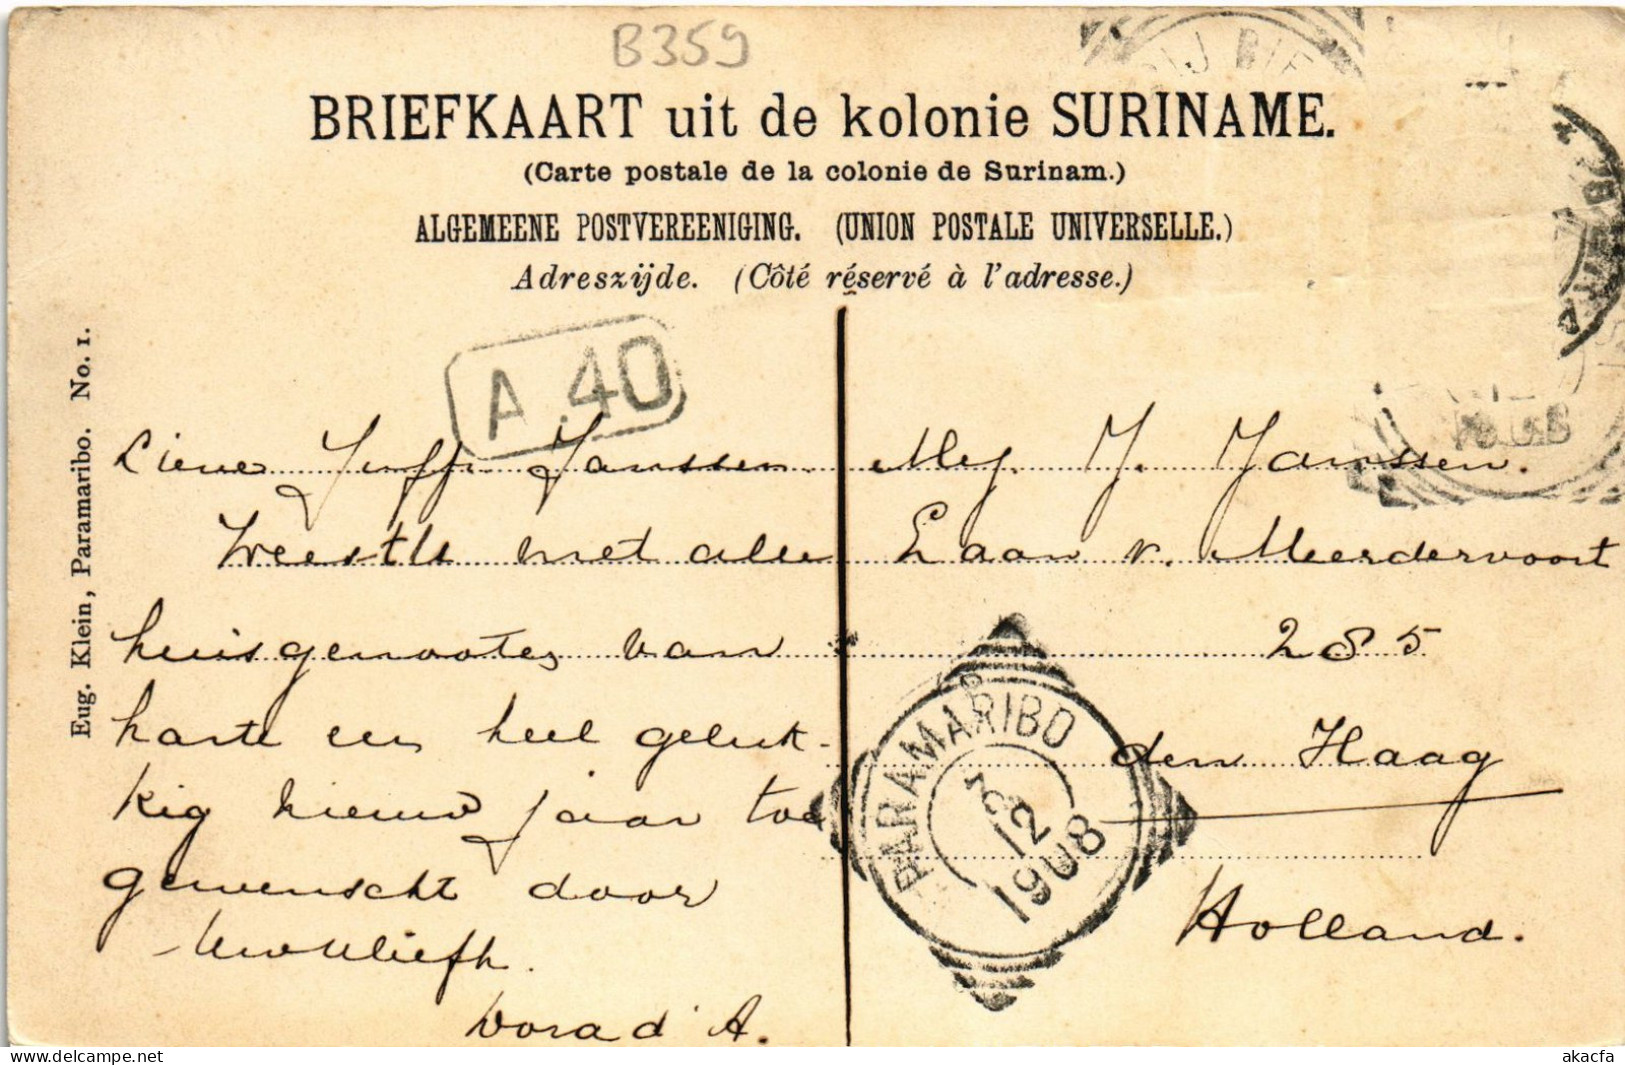 B359
BRIEFKAART uit de kolonie SURINAME.
(Carte postale de la colonie de Surinam.)
ALGEMEENE POSTVEREENIGING. (UNION POSTALE UNIVERSELLE.)
Adreszijde. (Côté réservé à l'adresse.)
Eug. Klein, Paramaribo. No. 1.
A 40
Lieve Juffr. Janssen.
Weest U met alle
huisgenooten van
harte een heel geluk-
kig nieuw jaar toe
gewenscht door
Uw U liefh.
Dora d' A.
Mej. J. Janssen.
Laan v. Meerdervoort
285
den Haag
Holland.
PARAMARIBO
12
1908
akacfa